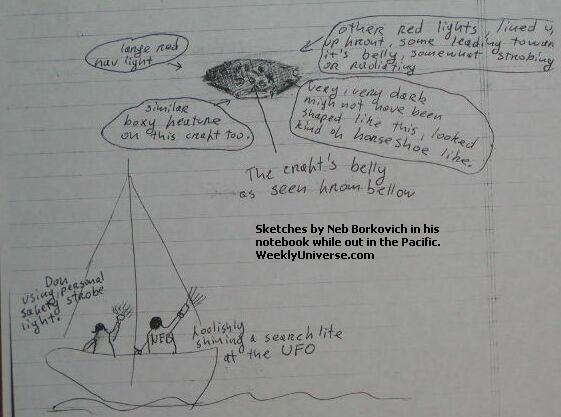 large red
nav light
other red lights lined u
up front, some leading towar
it's belly, somewhat strobing
or radiating
similar
boxy feature
on this craft too.
very, very dark
migh not have been
shaped like this, looked
kind of horseshoe like.
The craft's belly
as seen from bellow
Sketches by Neb Borkovich in his
notebook while out in the Pacific.
WeeklyUniverse.com
Don
using personal
safety strobe
light.
NEB
foolishly
shining a search lite
at the UFO